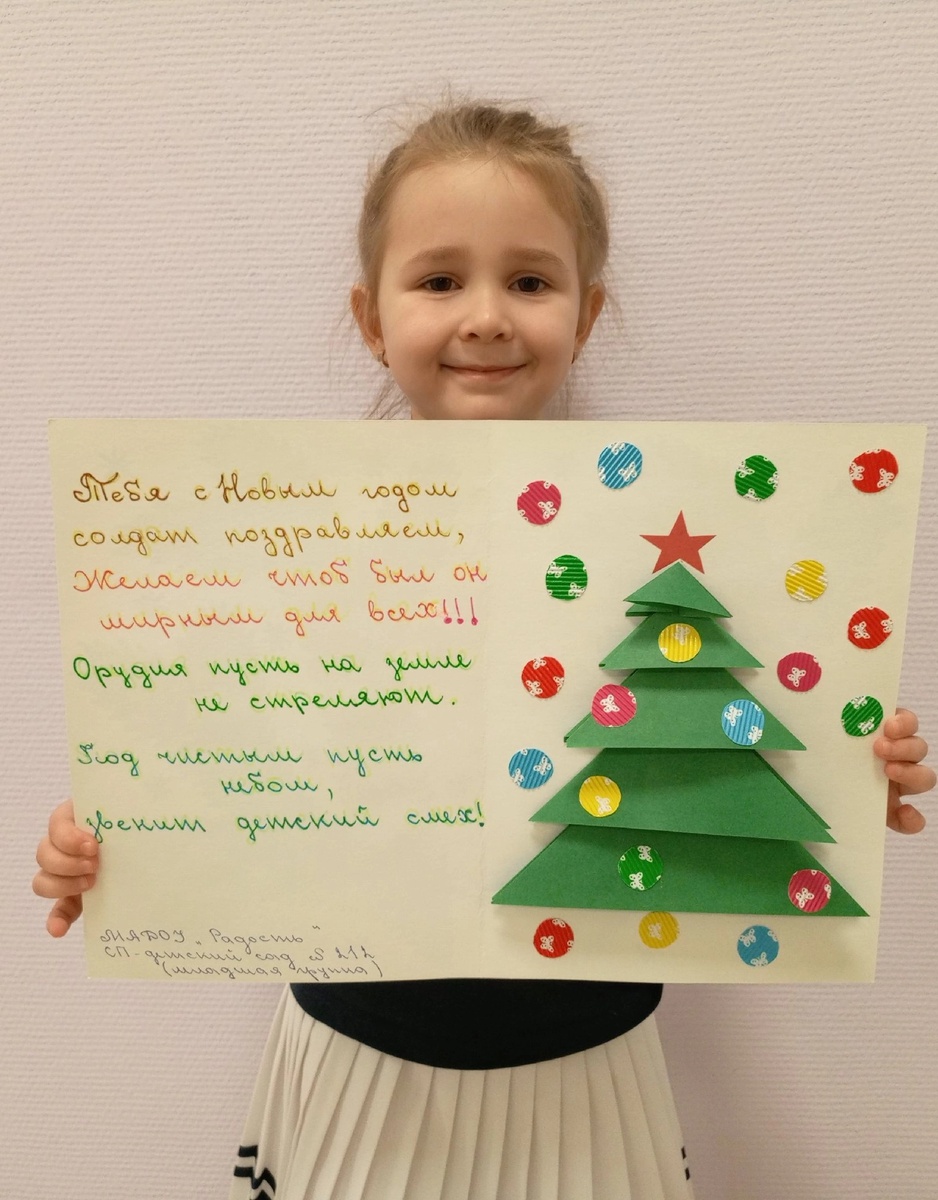 Тебя с Новым годом
солдат поздравляем,
Желаем чтоб был он
мирным для всех!!!
Орудия пусть на земле
не стреляют.
Год чистым пусть
небом,
звенит детский смех!
МАДОУ „Радость"
СП-детский сад №212
(младшая группа)